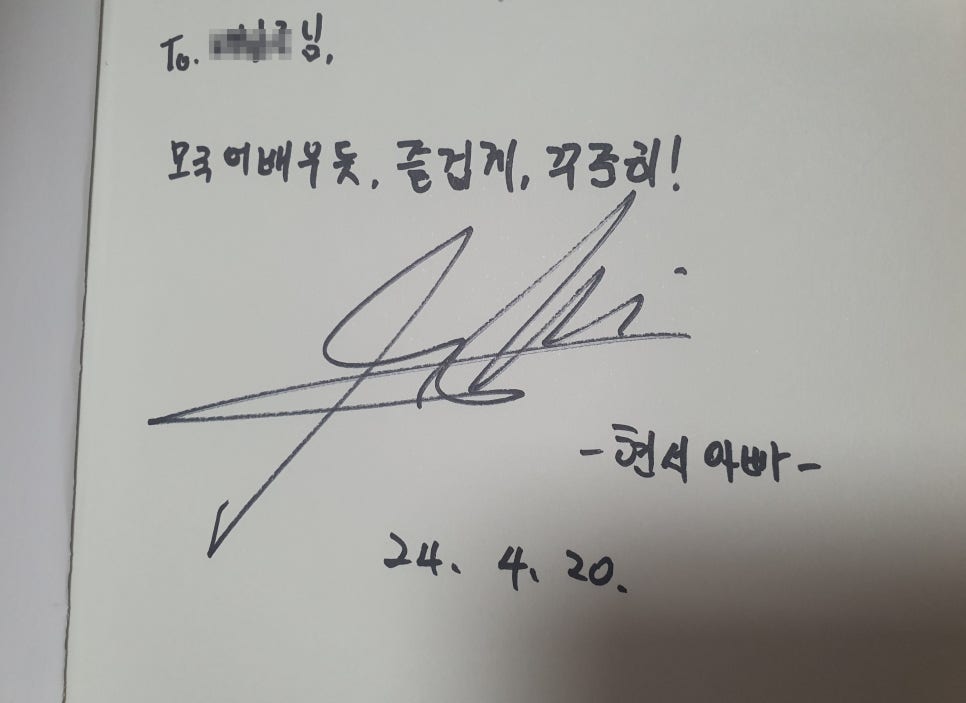 To. 님,
모국어배우듯, 즐겁게, 꾸준히!
-현서아빠-
24. 4. 20.